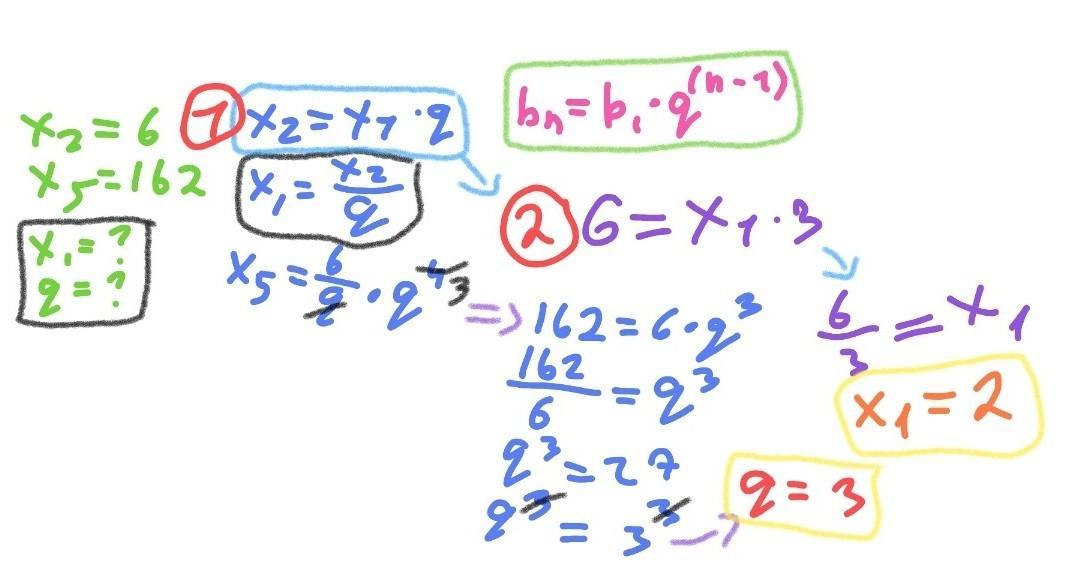 x₂ = 6
x₅ = 162
x₁ = ?
q = ?
1 x₂ = x₁ · q
x₁ = x₂/q
x₅ = 6/q · q⁴ ³
bₙ = b₁ · q^(n-1)
2 6 = x₁ · 3
⇒ 162 = 6 · q³
162/6 = q³
q³ = 27
q³ = 3³
q = 3
6/3 = x₁
x₁ = 2